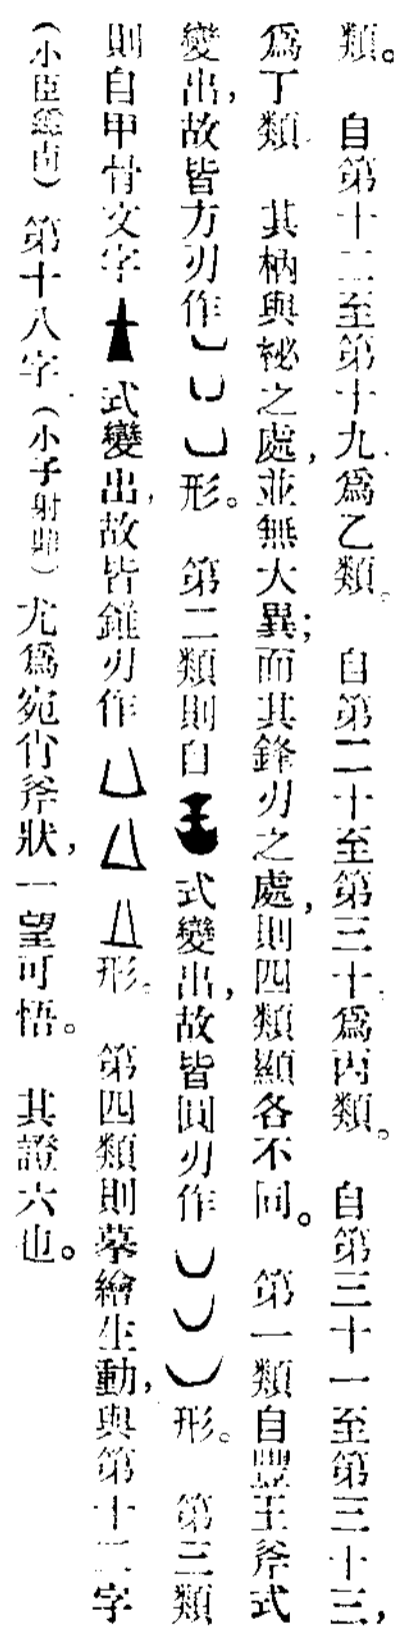 類。　自第十二至第十九爲乙類。　自第二十至第三十爲丙類。　自第三十一至第三十三，
爲丁類　其柄與柲之處，並無大異；而其鋒刃之處，則四類顯各不同。　第一類自豐王斧式
變出，故皆方刃作形。　第二類則自式變出，故皆圓刃作形。　第三類
則自甲骨文字式變出，故皆鍾刃作形。　第四類則摹繪生動，與第十二字
（小臣卣）第十八字（小子射鼎）尤爲宛肖斧狀，一望可悟。　其證六也。